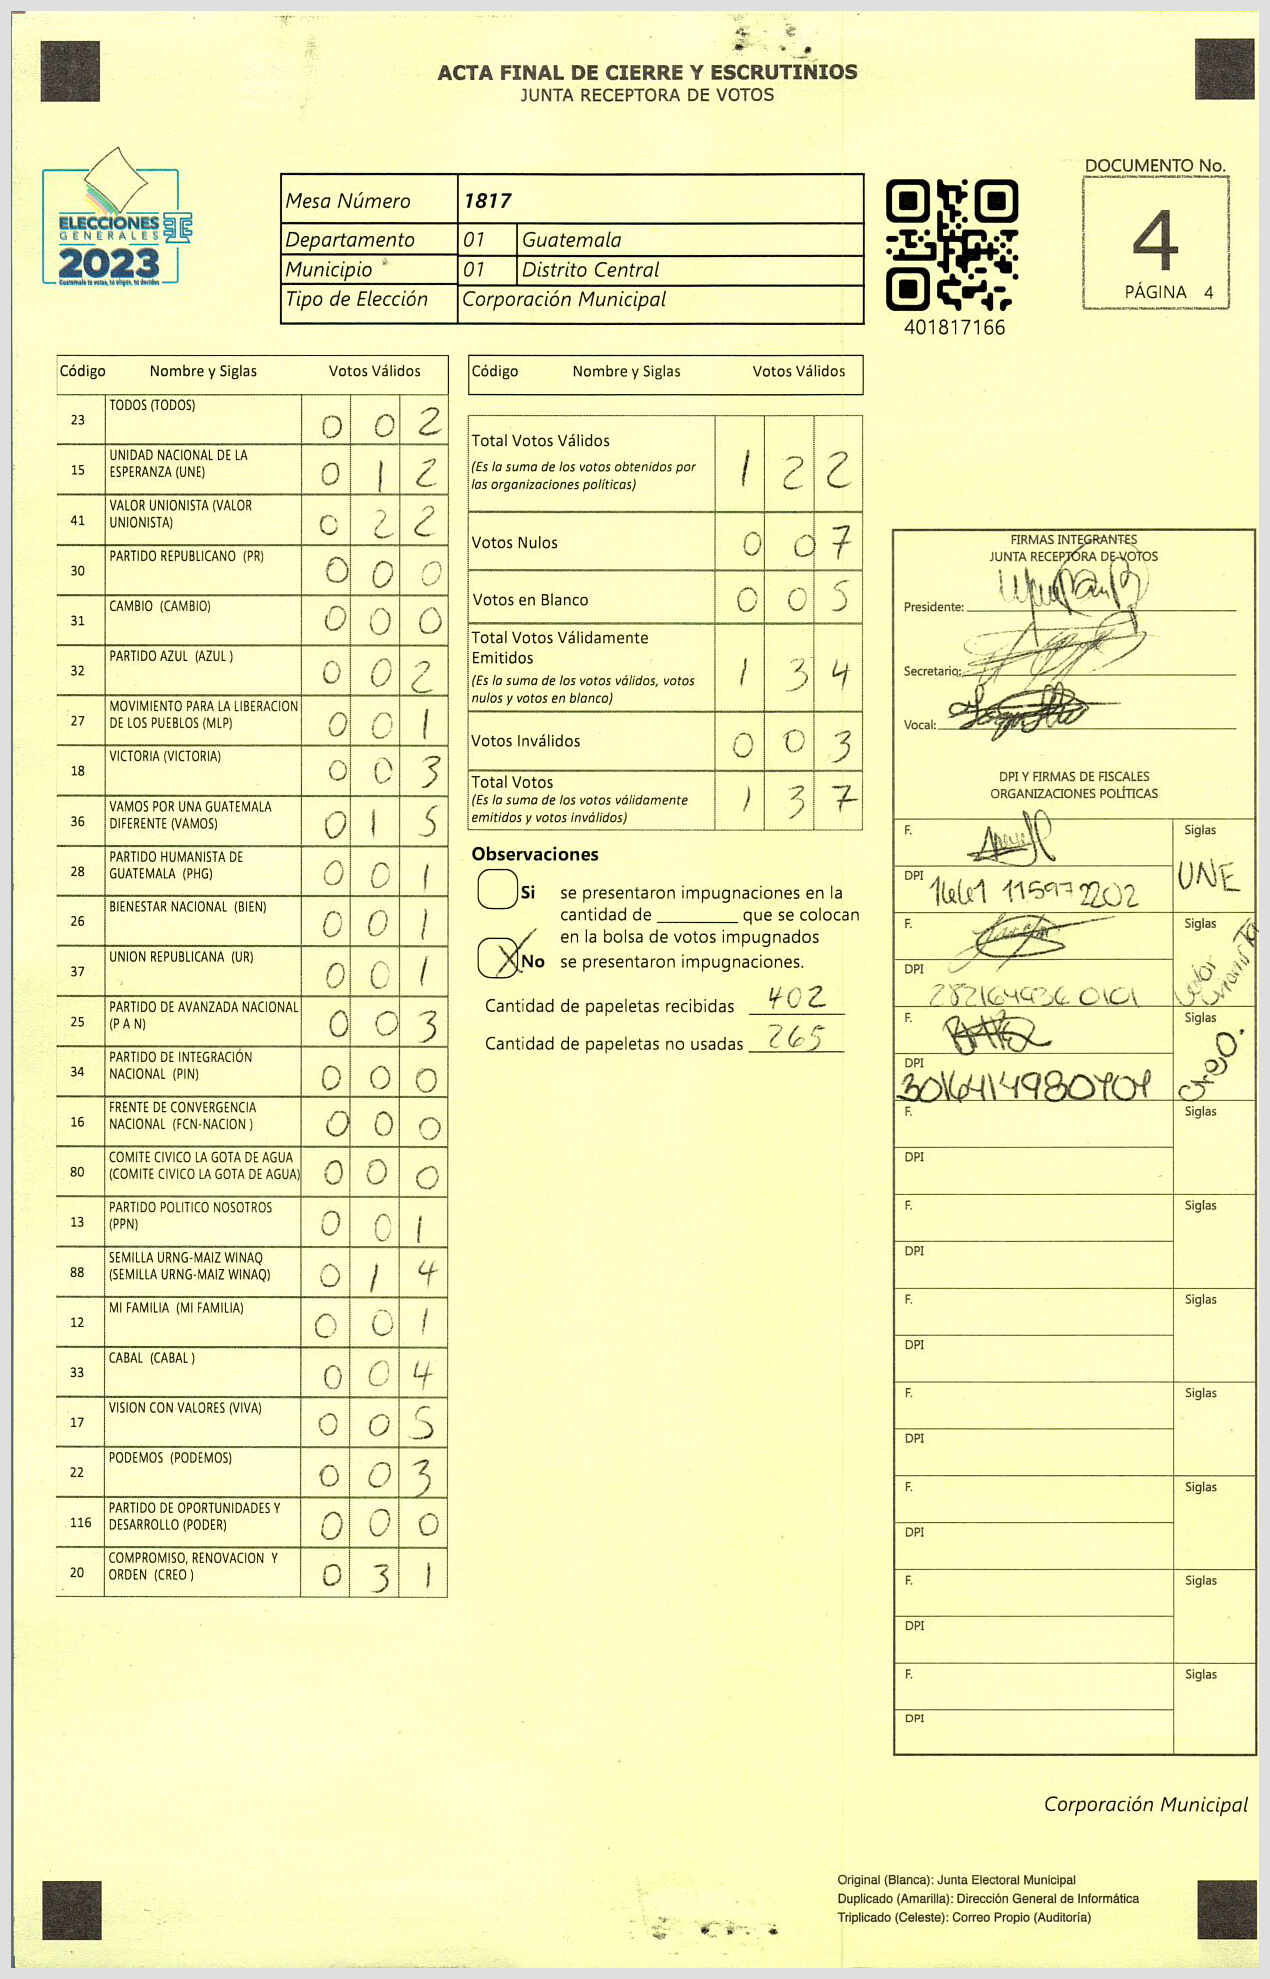 ACTA FINAL DE CIERRE Y ESCRUTINIOS
JUNTA RECEPTORA DE VOTOS
ELECCIONES
GENERALES
2023
Guatemala te votas, tú eliges, tú decides
Mesa Número 1817
Departamento 01 Guatemala
Municipio 01 Distrito Central
Tipo de Elección Corporación Municipal
401817166
DOCUMENTO No.
4
PÁGINA 4
Código Nombre y Siglas Votos Válidos
23 TODOS (TODOS) 0 0 2
15 UNIDAD NACIONAL DE LA
ESPERANZA (UNE) 0 1 2
41 VALOR UNIONISTA (VALOR
UNIONISTA) 0 2 2
30 PARTIDO REPUBLICANO (PR) 0 0 0
31 CAMBIO (CAMBIO) 0 0 0
32 PARTIDO AZUL (AZUL ) 0 0 2
27 MOVIMIENTO PARA LA LIBERACION
DE LOS PUEBLOS (MLP) 0 0 1
18 VICTORIA (VICTORIA) 0 0 3
36 VAMOS POR UNA GUATEMALA
DIFERENTE (VAMOS) 0 1 5
28 PARTIDO HUMANISTA DE
GUATEMALA (PHG) 0 0 1
26 BIENESTAR NACIONAL (BIEN) 0 0 1
37 UNION REPUBLICANA (UR) 0 0 1
25 PARTIDO DE AVANZADA NACIONAL
(P A N) 0 0 3
34 PARTIDO DE INTEGRACIÓN
NACIONAL (PIN) 0 0 0
16 FRENTE DE CONVERGENCIA
NACIONAL (FCN-NACION ) 0 0 0
80 COMITE CIVICO LA GOTA DE AGUA
(COMITE CIVICO LA GOTA DE AGUA) 0 0 0
13 PARTIDO POLITICO NOSOTROS
(PPN) 0 0 1
88 SEMILLA URNG-MAIZ WINAQ
(SEMILLA URNG-MAIZ WINAQ) 0 1 4
12 MI FAMILIA (MI FAMILIA) 0 0 1
33 CABAL (CABAL ) 0 0 4
17 VISION CON VALORES (VIVA) 0 0 5
22 PODEMOS (PODEMOS) 0 0 3
116 PARTIDO DE OPORTUNIDADES Y
DESARROLLO (PODER) 0 0 0
20 COMPROMISO, RENOVACION Y
ORDEN (CREO ) 0 3 1
Código Nombre y Siglas Votos Válidos
Total Votos Válidos
(Es la suma de los votos obtenidos por
las organizaciones políticas) 1 2 2
Votos Nulos 0 0 7
Votos en Blanco 0 0 5
Total Votos Válidamente
Emitidos
(Es la suma de los votos válidos, votos
nulos y votos en blanco) 1 3 4
Votos Inválidos 0 0 3
Total Votos
(Es la suma de los votos válidamente
emitidos y votos inválidos) 1 3 7
Observaciones
Si se presentaron impugnaciones en la
cantidad de ________ que se colocan
en la bolsa de votos impugnados
X No se presentaron impugnaciones.
Cantidad de papeletas recibidas 402
Cantidad de papeletas no usadas 265
FIRMAS INTEGRANTES
JUNTA RECEPTORA DE VOTOS
Presidente:
Secretario:
Vocal:
DPI Y FIRMAS DE FISCALES
ORGANIZACIONES POLÍTICAS
F. Siglas
DPI 1661 115972202 UNE
F. Siglas
DPI 282164936 0101 Valor Unionista
F. Siglas
DPI 3016414980101 creo.
F. Siglas
DPI
F. Siglas
DPI
F. Siglas
DPI
F. Siglas
DPI
F. Siglas
DPI
F. Siglas
DPI
F. Siglas
DPI
Corporación Municipal
Original (Blanca): Junta Electoral Municipal
Duplicado (Amarilla): Dirección General de Informática
Triplicado (Celeste): Correo Propio (Auditoría)